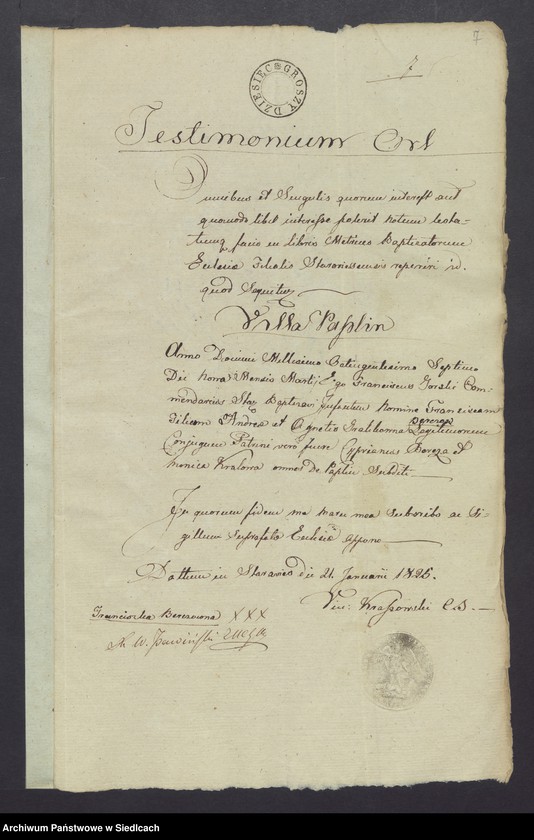 7
7
DZIESIĘC GROSZY
Testimonium Ort
Omnibus et Singulis quorum interest aut
quomodo libet interesse poterit notum testa-
tumq facio in libris Metrices Baptisatorum
Ecclesiæ Filialis Starawiesensis reperiri id.
quod Sequitur
Villa Paplin
Anno Domini Millesimo Octingentesimo Septimo
Die nona Mensis Martii Ego Franciscus Com-
mendarius Baptisavi Infantem Nomine Franciscam
Filiam Andreæ et Agnetis Bereza Legitimorum
Conjugum Patrini vero fuere Cyprianus Bereza et
Monica omnes de Paplin Subditi
In quorum fidem me manu mea subscribo ac Si-
gillum Suprafatæ Ecclesiæ appono
Dattum in Starawies die 21 Januarii 1825.
Vin: Krassowski
Franciszka Berezowna XXX